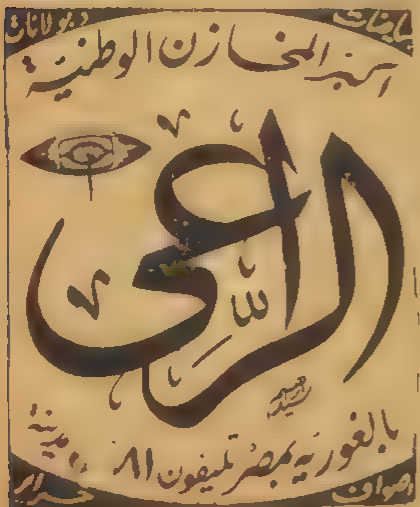 بياضات
دبولانات
أكبر المخازن الوطنية
الراعى
لله
بالغوريه بمصر تليفون ٨١ مدينة
أصواف
حراير